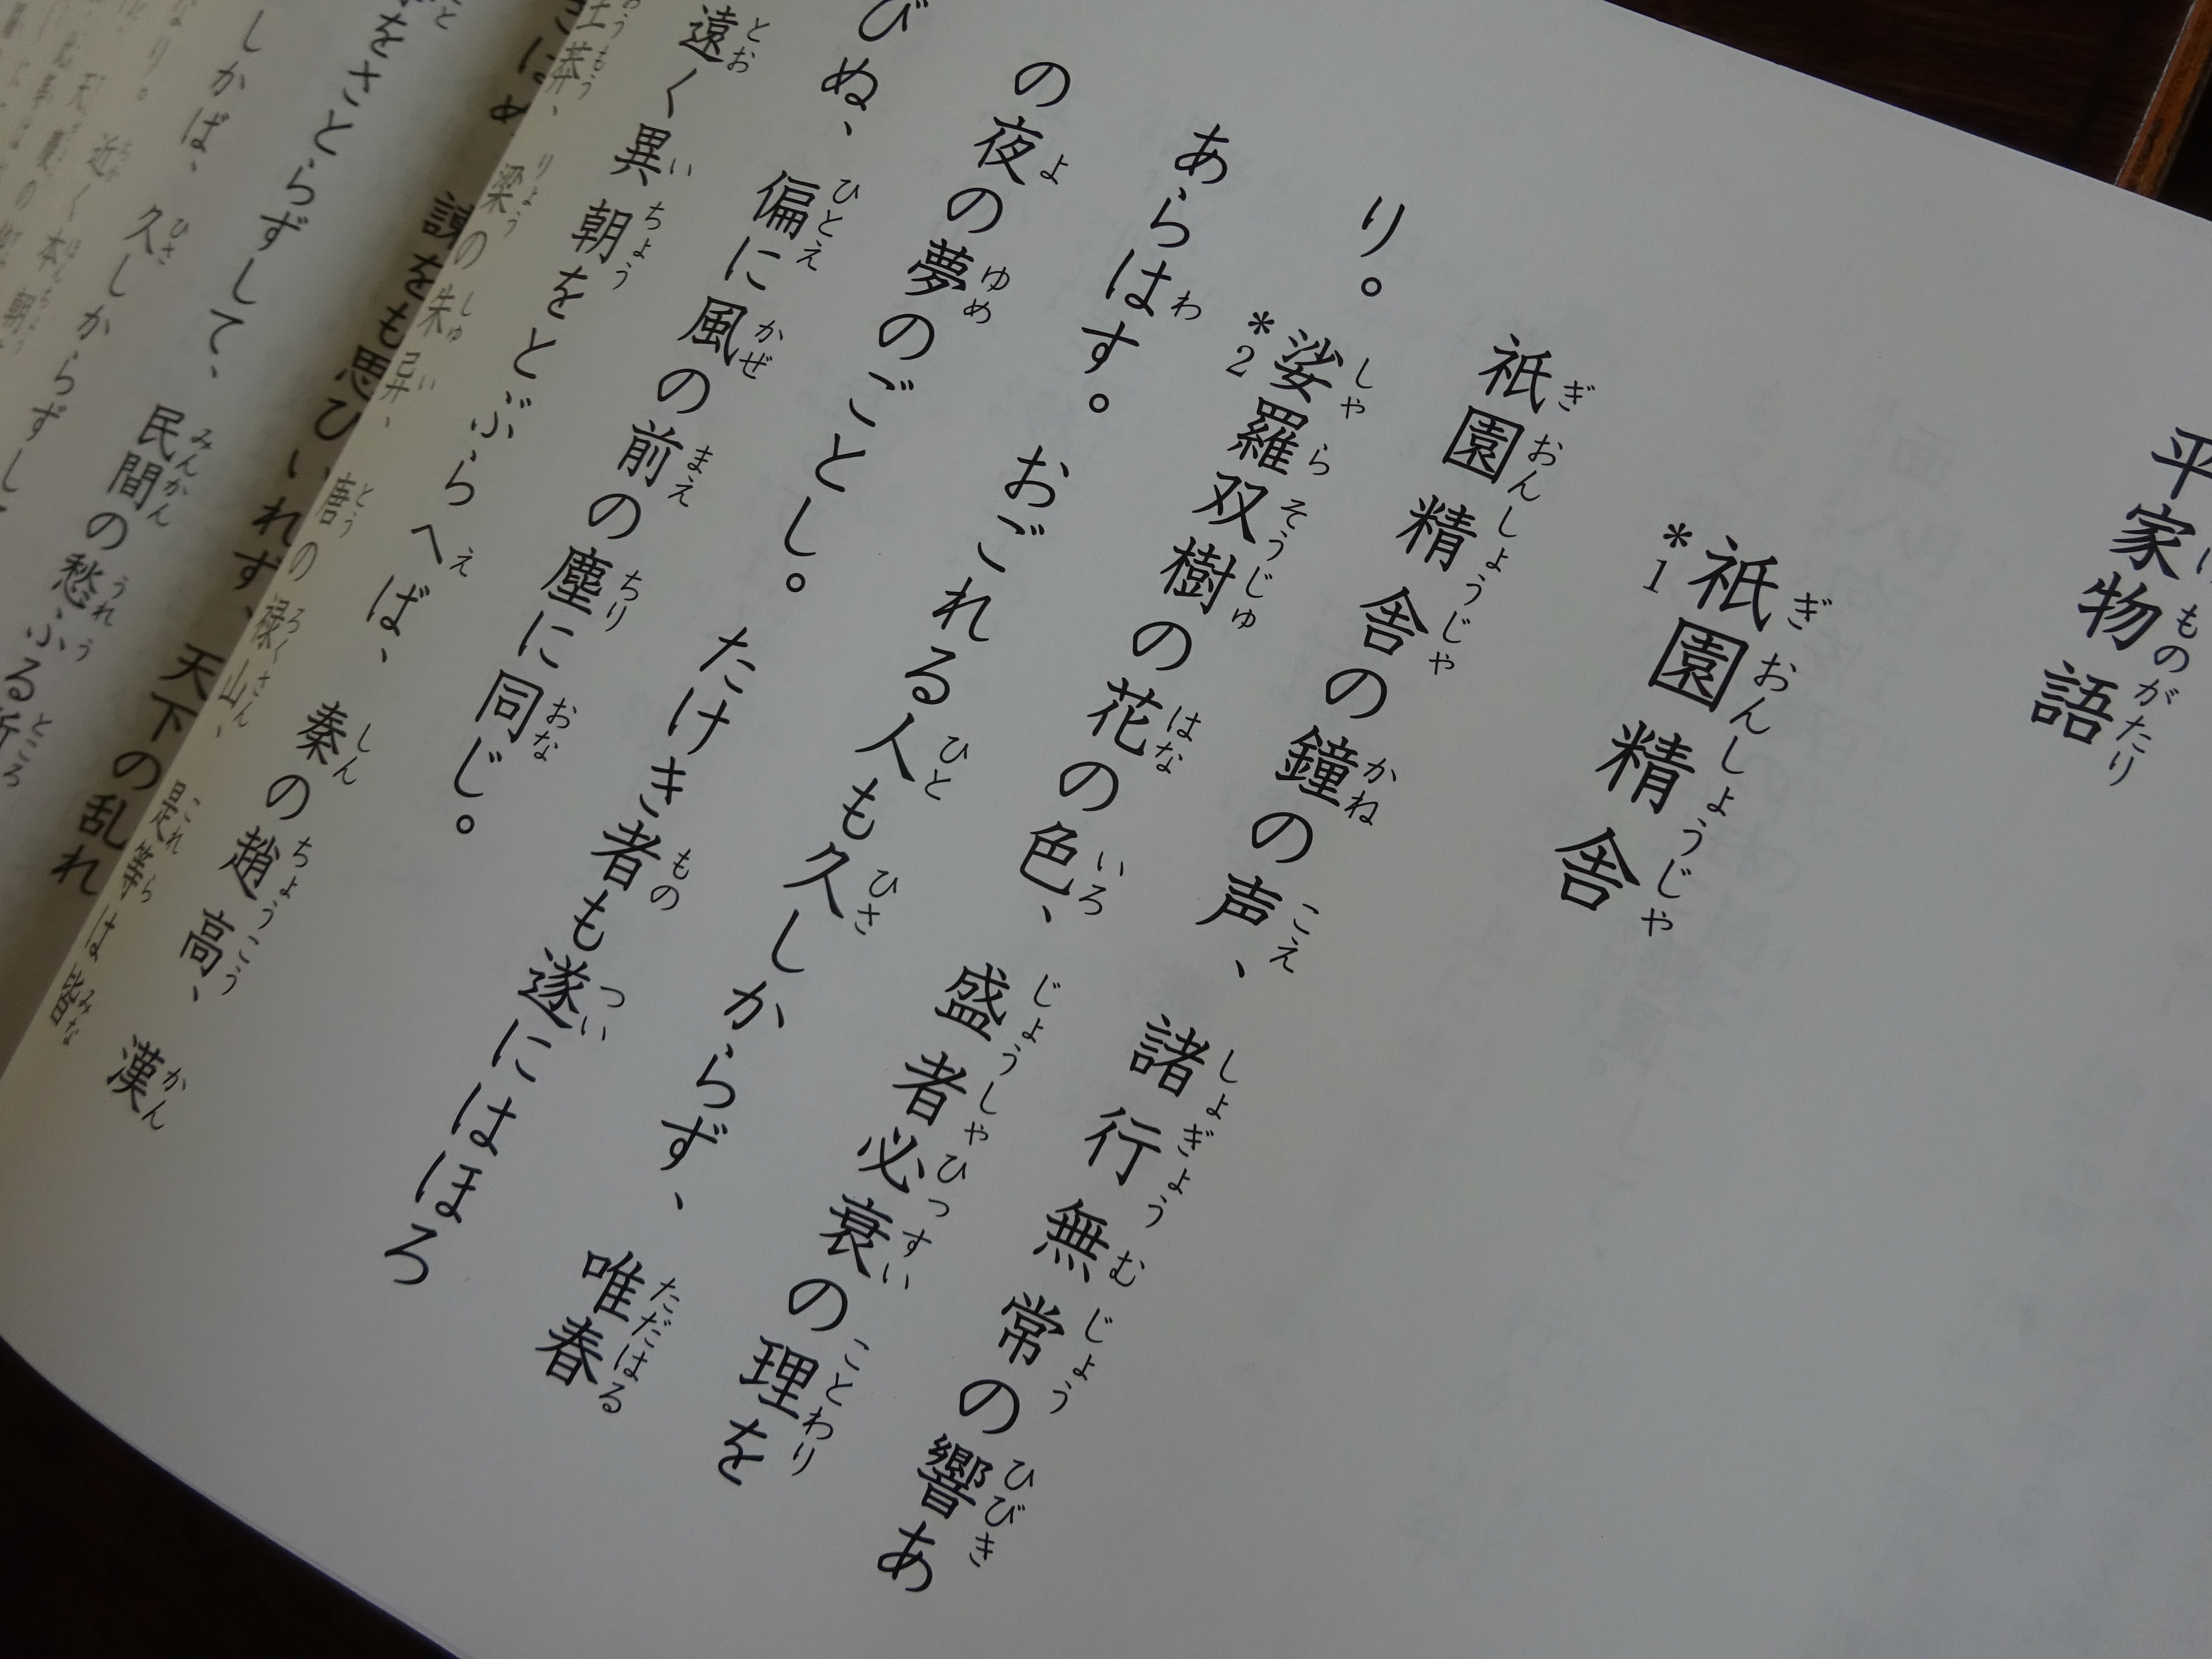 平家物語
*1祇園精舎
祇園精舎の鐘の声、諸行無常の響あ
り。*2娑羅双樹の花の色、盛者必衰の理を
あらはす。おごれる人も久しからず、唯春
の夜の夢のごとし。たけき者も遂にはほろ
びぬ、偏に風の前の塵に同じ。
遠く異朝をとぶらへば、秦の趙高、漢
莽、梁の朱异、唐の禄山、是等は皆
きはめ、諫をも思ひいれず、天下の乱れ
をさとらずして、民間の愁ふる所
しかば、久しからずして
なり。近く本朝